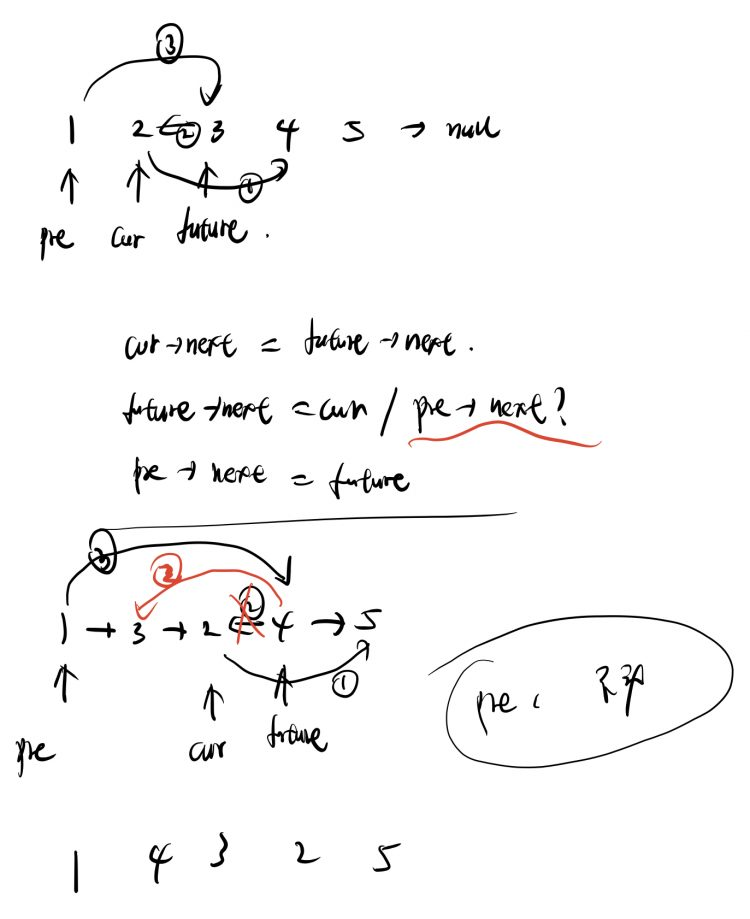 ③
1 2 ⇐ ② 3 4 5 → null
①
pre cur future.
cur→next = future→next.
future→next = cur / pre→next?
pre→next = future
③ ②
②
1 → 3 → 2 ⇐ 4 → 5
①
pre cur future
pre:
1 4 3 2 5